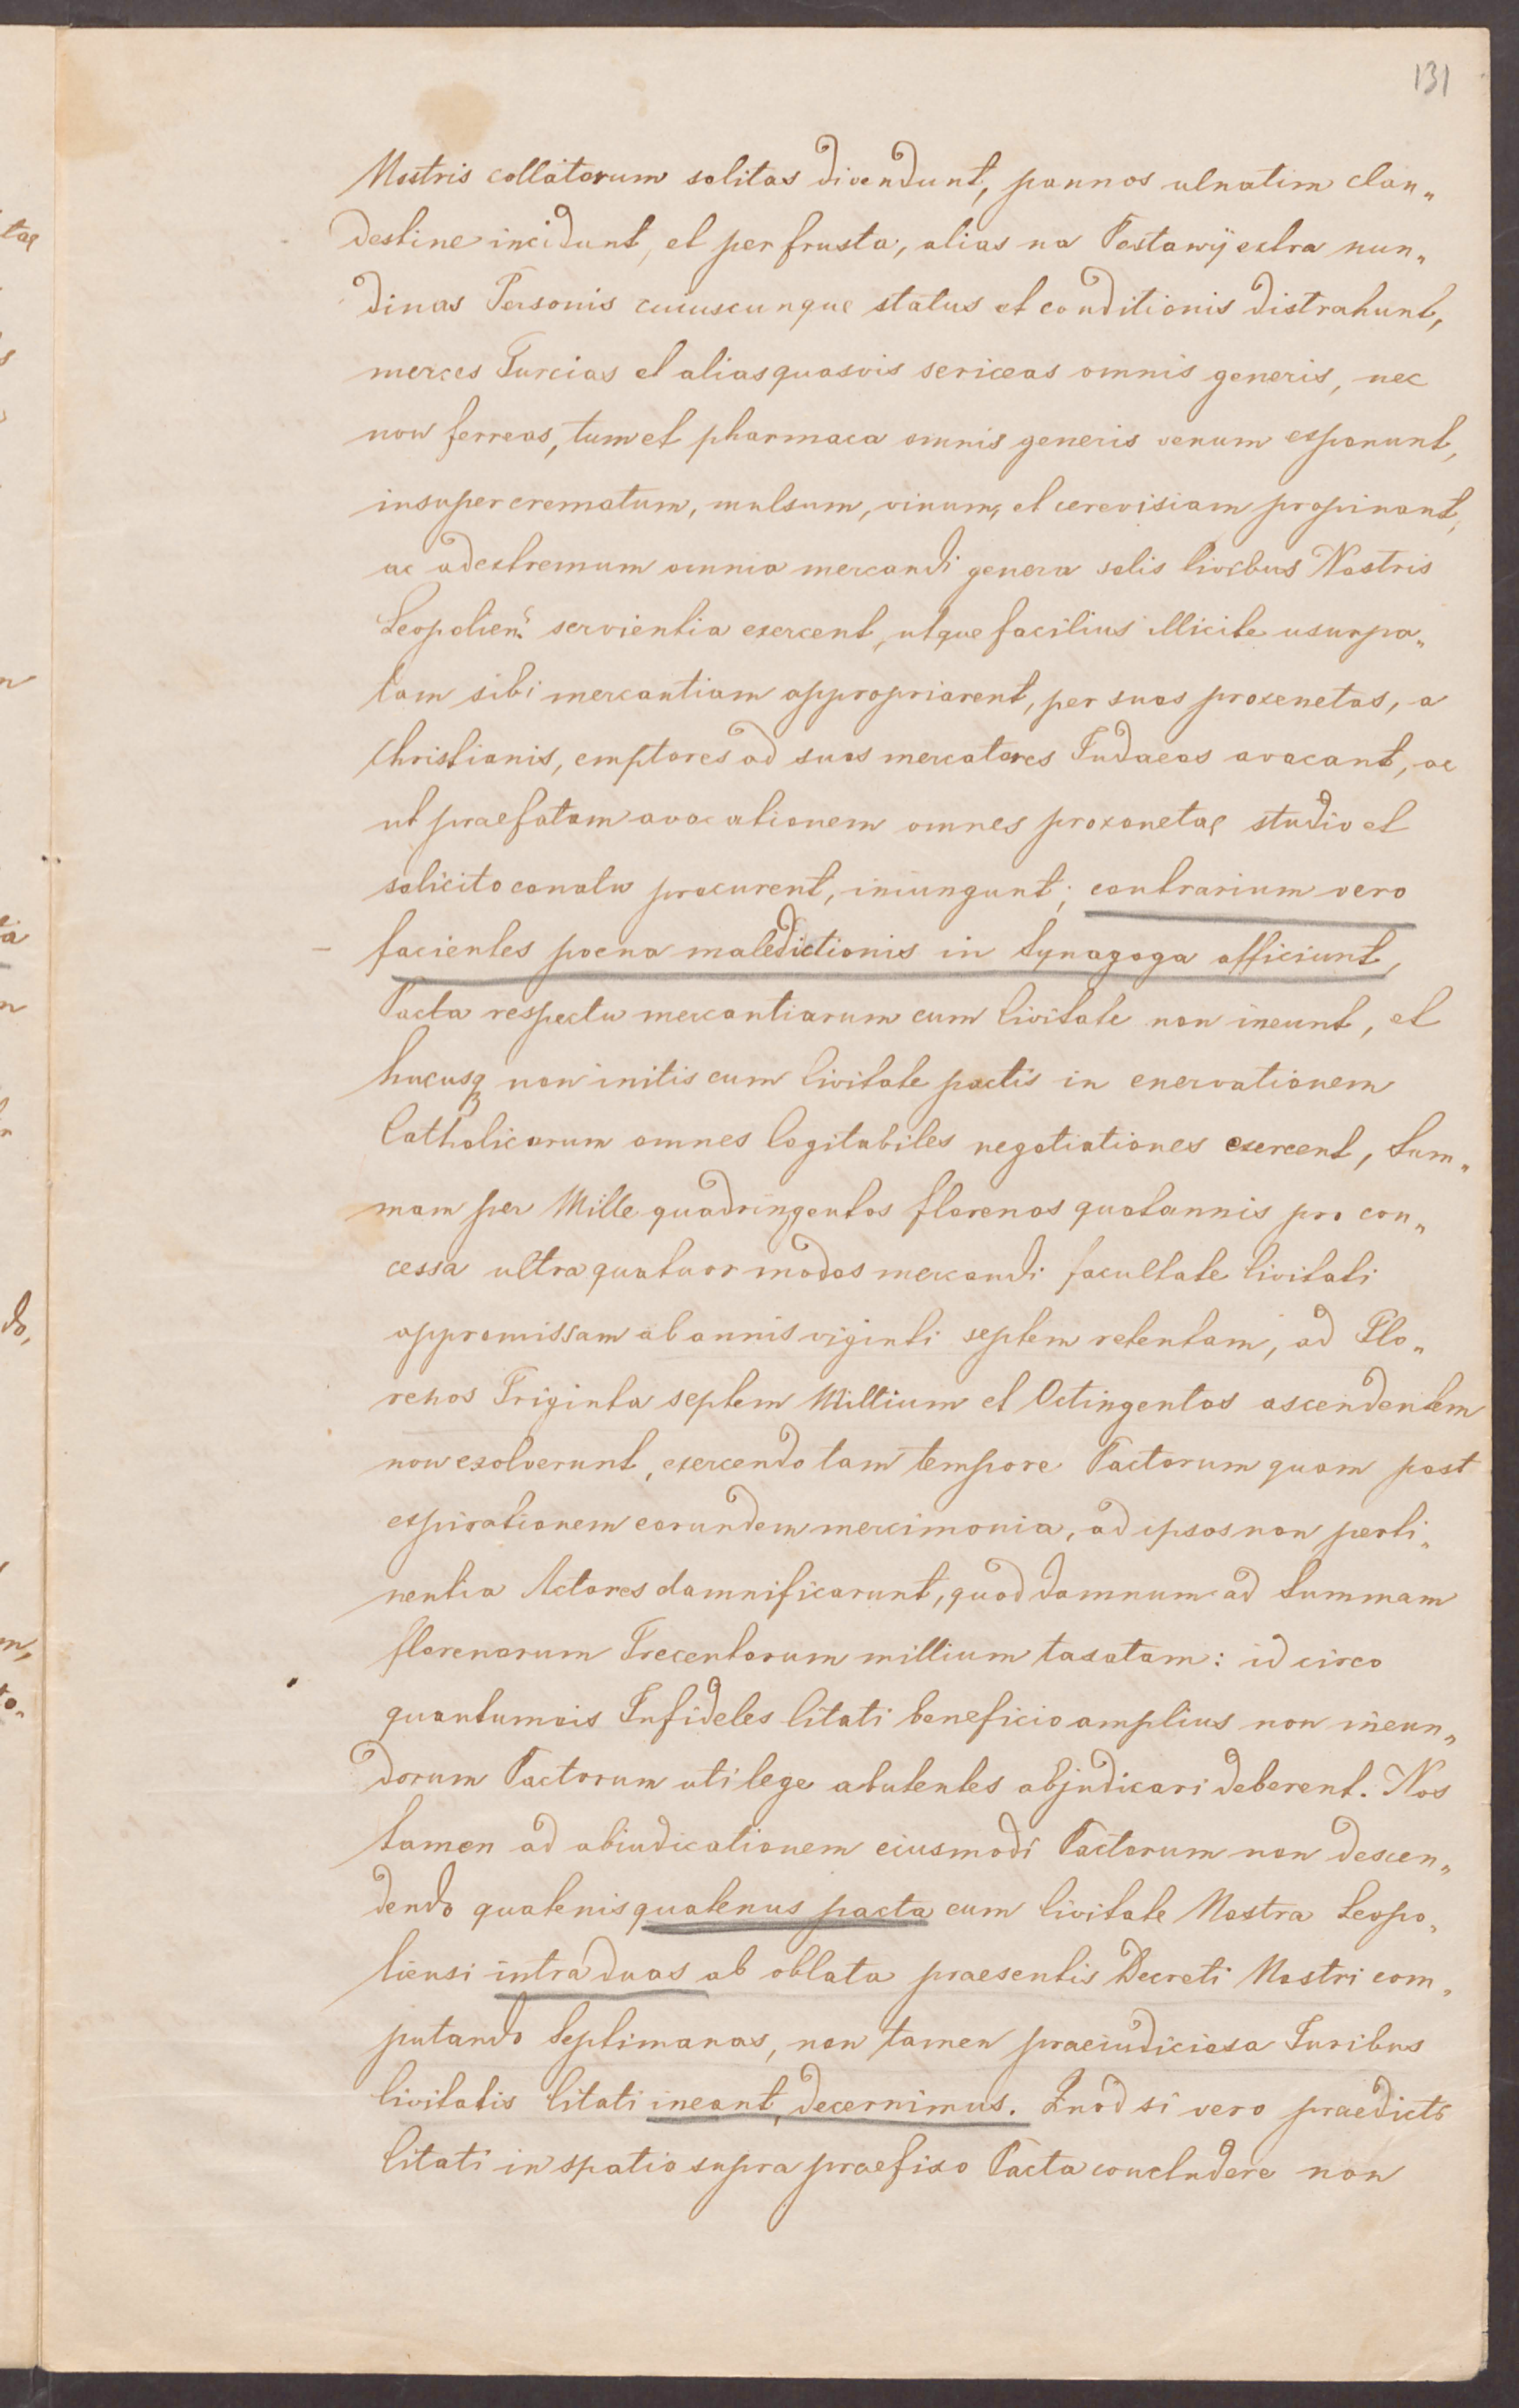 131
Nostris collatorum solitas divendunt, pannos ulnatim clan„
destine incidunt, et per frusta, alias na Postawÿ extra nun„
dinas Personis cuiuscunque status et conditionis distrahunt,
merces Turcias et alias quasvis sericeas omnis generis, nec
non ferreas, tum et pharmaca omnis generis venum exponunt,
insuper crematum, mulsum, vinum, et cerevisiam propinant,
ac ad extremum omnia mercandi genera solis Civibus Nostris
Leopolien: servientia exercent, utque facilius illicite usurpa„
tam sibi mercantiam appropriarent, per suos proxenetas, a
Christianis, emptores ad suos mercatores Judaeos avocant, ac
ut praefatam avocationem omnes proxonetae studio et
solicito conatu procurent, iniungunt; contrarium vero
facientes poena maledictionis in Synagoga afficiunt,
Pacta respectu mercantiarum cum Civitate non ineunt, et
hucusq non initis cum Civitate pactis in enervationem
Catholicorum omnes Cogitabiles negotiationes exercent, Sum„
mam per Mille quadringentos florenos quotannis pro con„
cessa ultra quatuor modos mercandi facultate Civitati
appromissam ab annis viginti septem retentam, ad Flo„
renos Triginta septem Millium et Octingentos ascendentem
non exolverunt, exercendo tam tempore Pactorum quam post
expirationem eorundem mercimonia, ad ipsos non perti„
nentia Actores damnificarunt, quod damnum ad Summam
florenorum Trecentorum millium taxatam: id circo
quantumvis Infideles Citati beneficio amplius non ineun„
dorum Pactorum uti lege abutentes abjudicari deberent. Nos
tamen ad abiudicationem eiusmodi Pactorum non descen„
dendo quatenis quatenus pacta cum Civitate Nostra Leopo„
liensi intra duas ab oblata praesentis Decreti Nostri com„
putando Septimanas, non tamen praeiudiciosa Iuribus
Civitatis Citati ineant, decernimus. Quod si vero praedicti
Citati in spatio supra praefixo Pacta concludere non